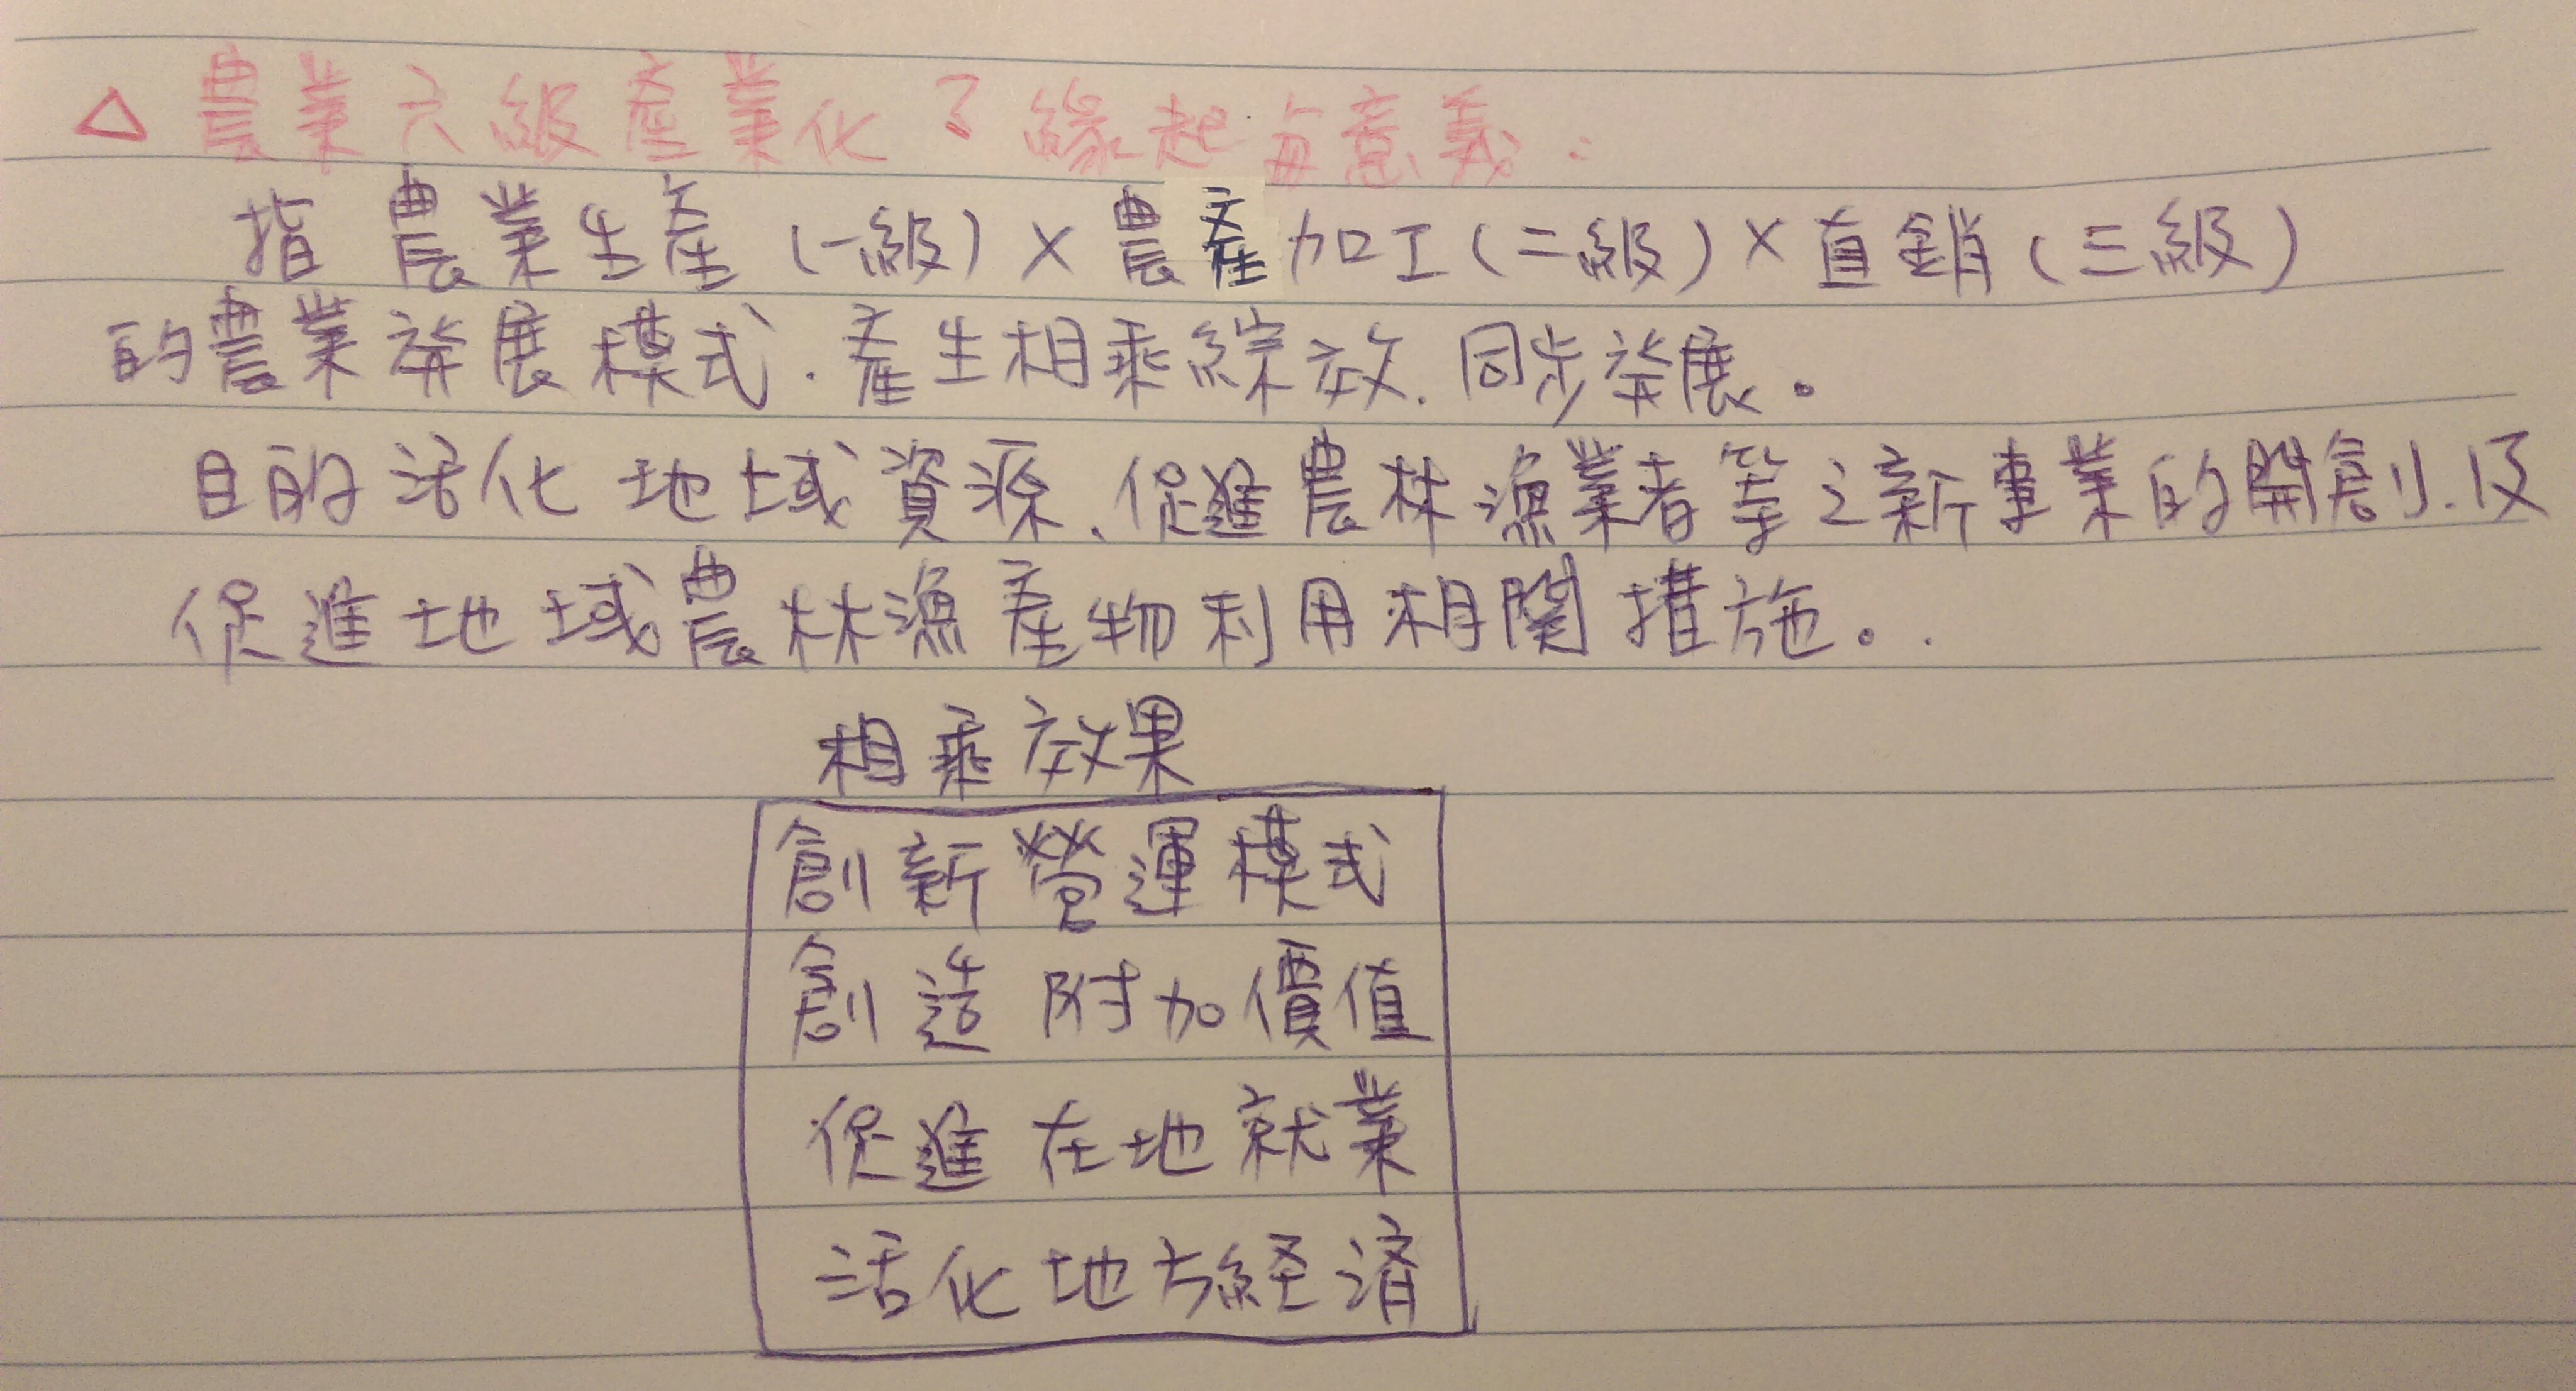 △ 農業六級產業化了緣起每意義:
指農業生產(一級)×農產加工(二級)×直銷(三級)
的農業發展模式.產生相乘綜效.同步發展。
目的活化地域資源、促進農林漁業者等之新事業的開創.及
促進地域農林漁產物利用相關措施。.
相乘效果
創新營運模式
創造附加價值
促進在地就業
活化地方經濟